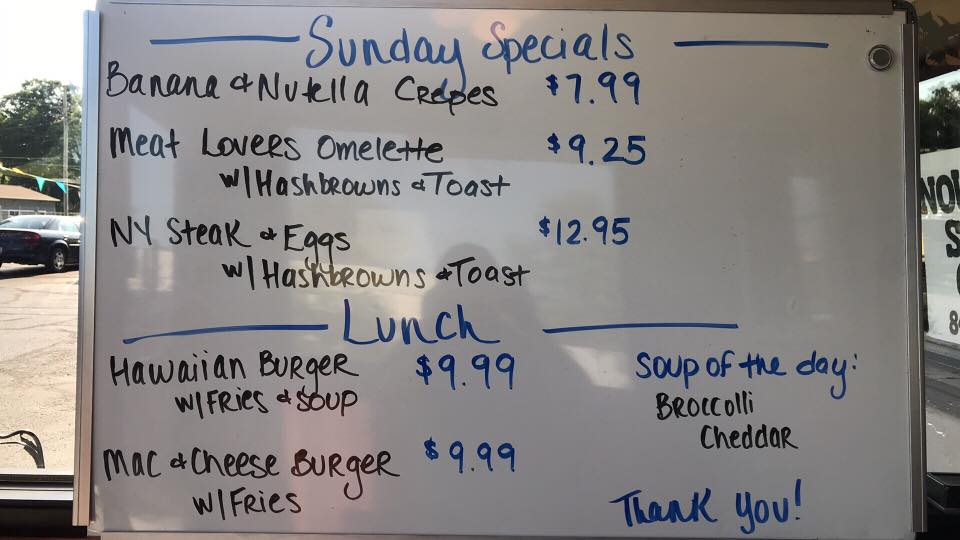 Sunday Specials
Banana & Nutella Crepes $7.99
Meat Lovers Omelette $9.25
w/Hashbrowns & Toast
NY Steak & Eggs $12.95
w/Hashbrowns & Toast
Lunch
Hawaiian Burger $9.99
w/Fries & Soup
Mac & Cheese Burger $9.99
w/Fries
Soup of the day:
Broccolli
Cheddar
Thank You!